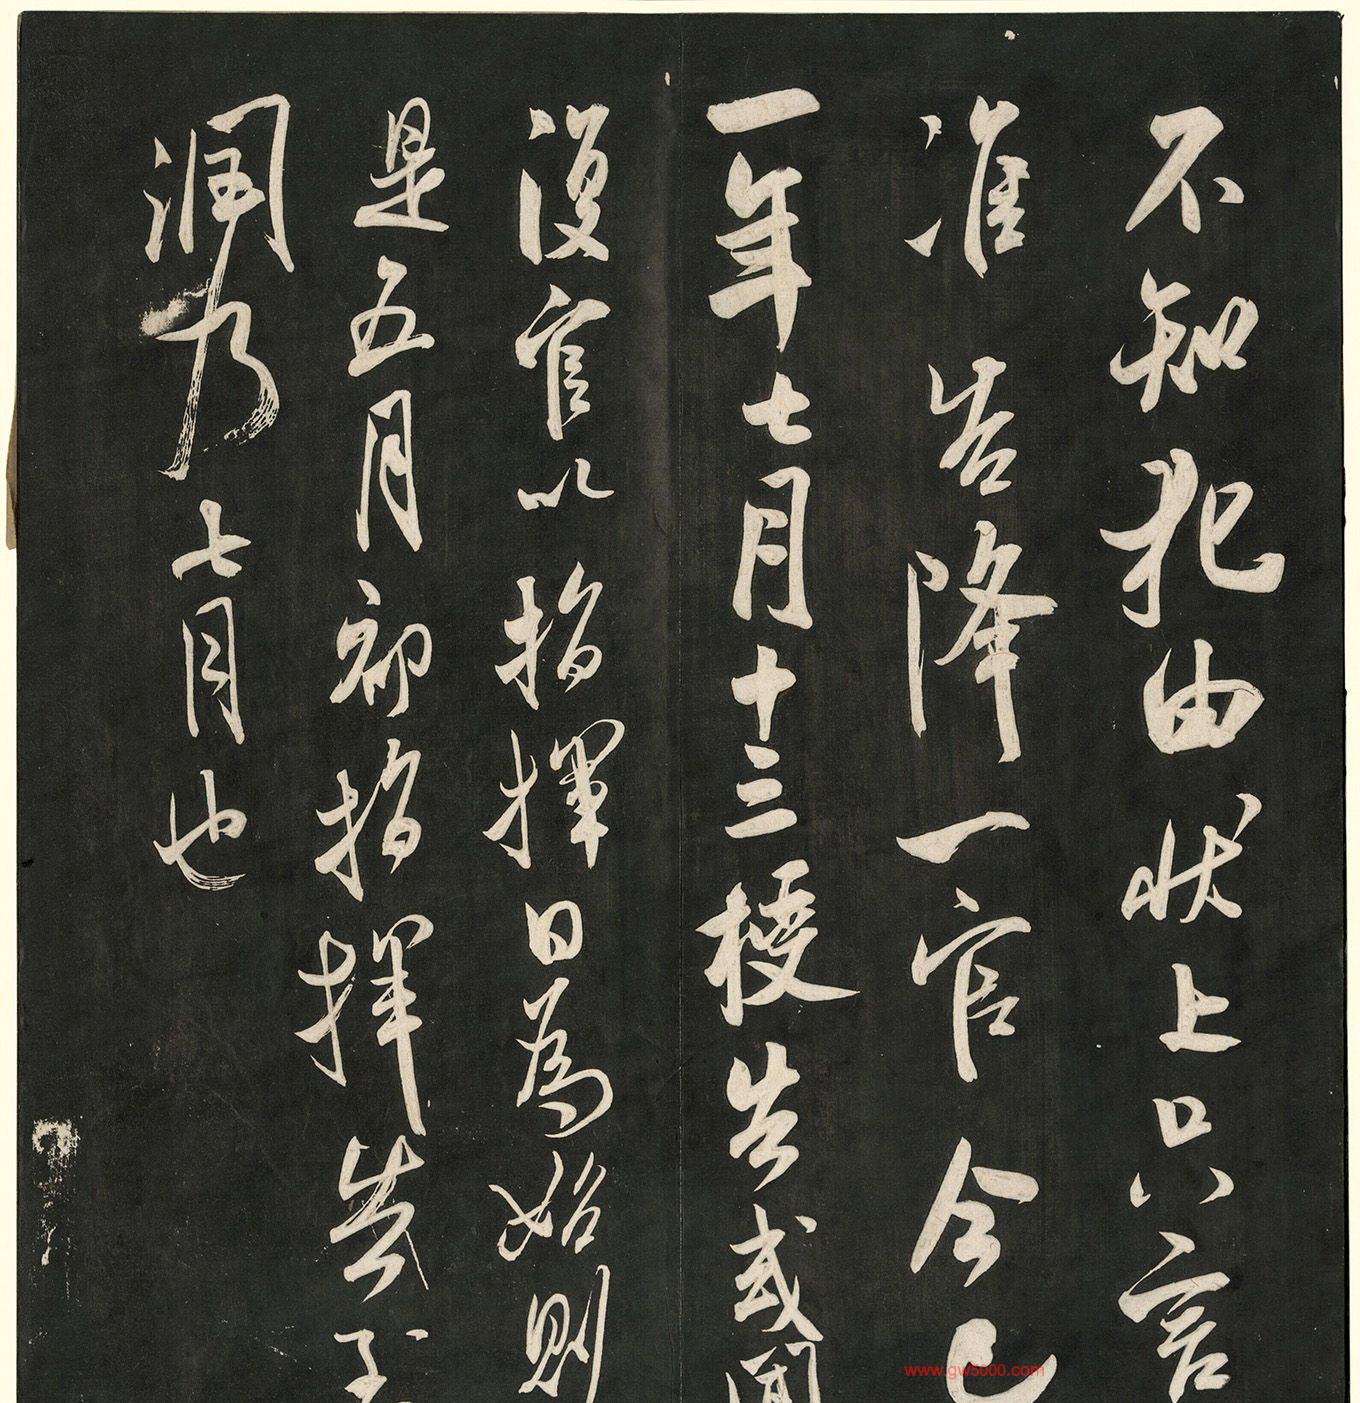 不知犯由状上只言
准告降一官今已
一年七月十三授告或闻
復官以指揮日為始則
是五月初指揮告
潤乃七月也
www.gw5000.com